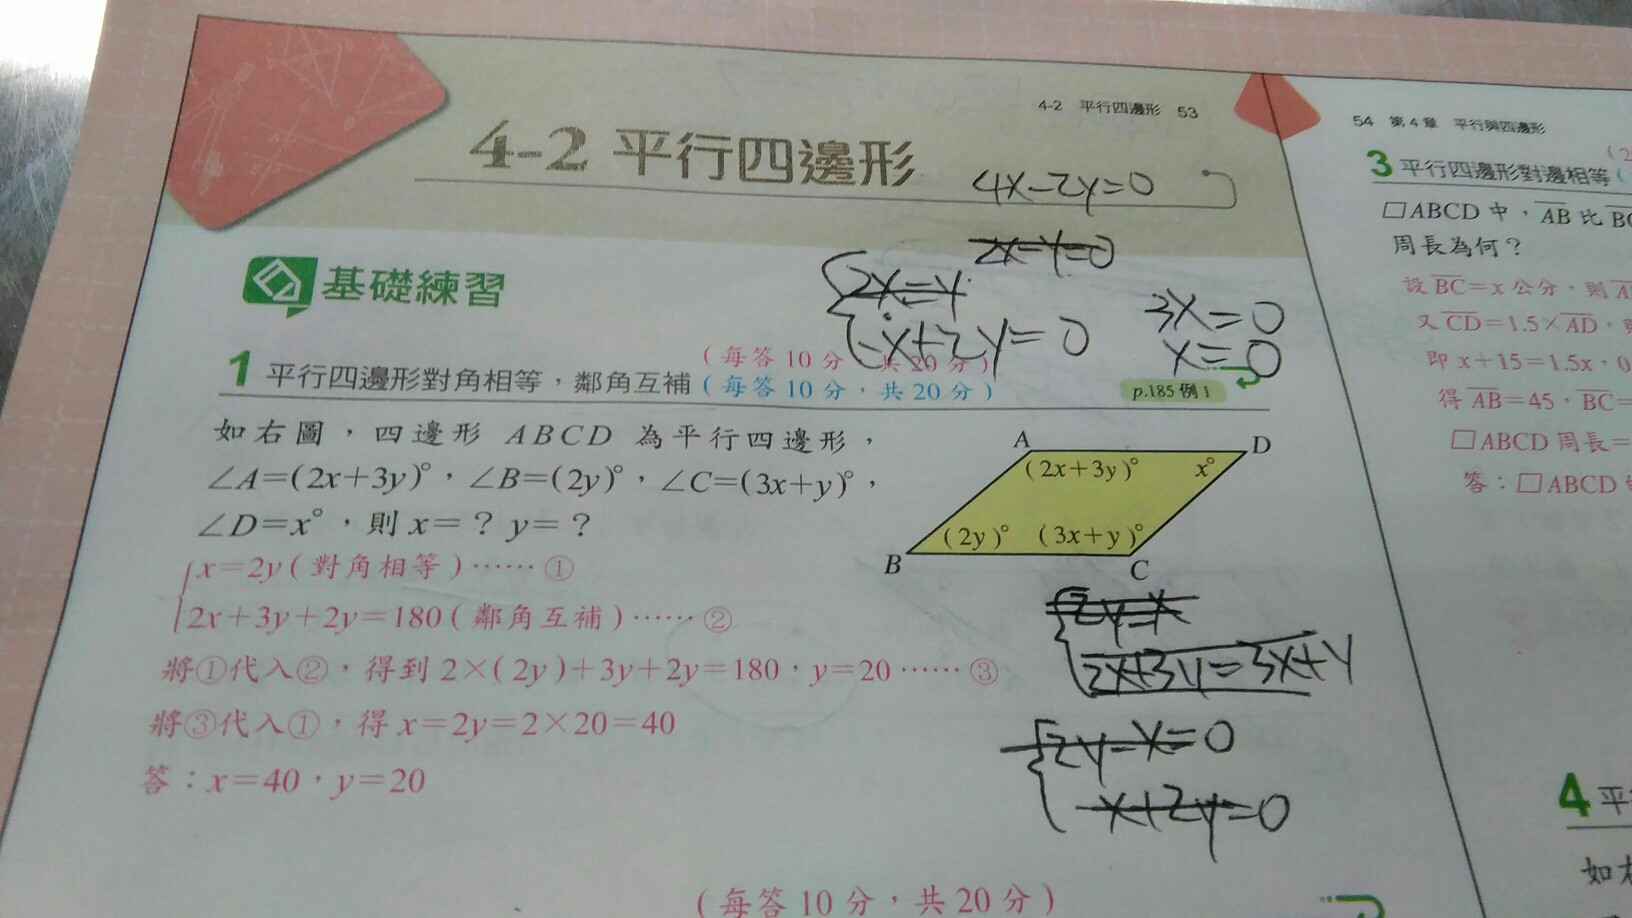 4-2 平行四邊形 53
4-2 平行四邊形
4x-2y=0
2x-y=0
2x=y
-x+2y=0
3x=0
x=0
基礎練習
1 平行四邊形對角相等，鄰角互補
(每答10分，共20分)
(每答10分，共20分)
p.185 例1
如右圖，四邊形 ABCD 為平行四邊形，
∠A=(2x+3y)°，∠B=(2y)°，∠C=(3x+y)°，
∠D=x°，則 x=？y=？
A
D
(2x+3y)°
x°
(2y)°
(3x+y)°
B
C
x=2y(對角相等)……①
2x+3y+2y=180(鄰角互補)……②
將①代入②，得到 2×(2y)+3y+2y=180，y=20……③
將③代入①，得 x=2y=2×20=40
答：x=40，y=20
2y=x
2x+3y=3x+y
2y-x=0
-x+2y=0
(每答10分，共20分)
54 第4章 平行與四邊形
(2
3 平行四邊形對邊相等(
□ABCD 中，AB 比 BC
周長為何？
設 BC=x 公分，則 A
又 CD=1.5×AD，
即 x+15=1.5x，0
得 AB=45，BC=
□ABCD 周長=
答：□ABCD
4 平
如右